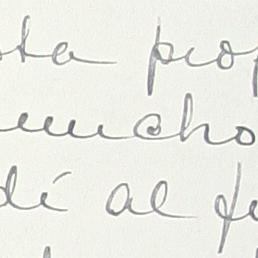 sta prop
mucho
dí al fe